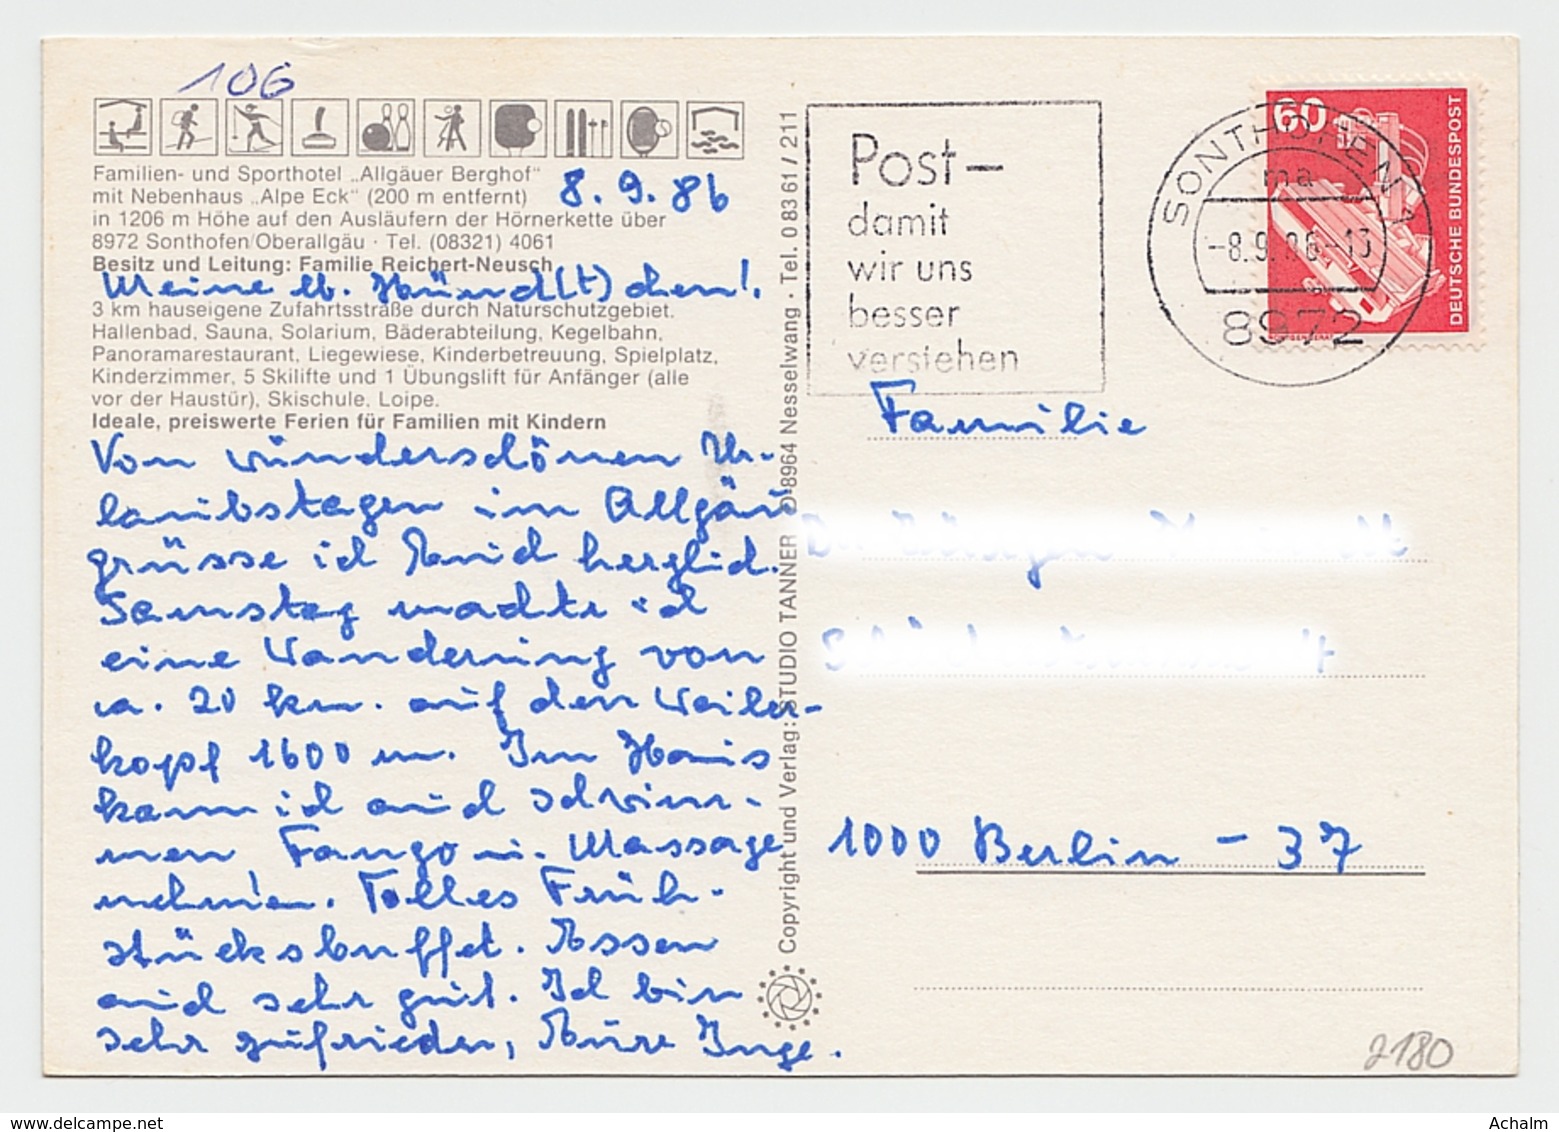 106
Familien- und Sporthotel „Allgäuer Berghof“
mit Nebenhaus „Alpe Eck“ (200 m entfernt)
8.9.86
in 1206 m Höhe auf den Ausläufern der Hörnerkette über
8972 Sonthofen/Oberallgäu · Tel. (08321) 4061
Besitz und Leitung: Familie Reichert-Neusch
Meine lb. Hünd(t)chen!
3 km hauseigene Zufahrtsstraße durch Naturschutzgebiet.
Hallenbad, Sauna, Solarium, Bäderabteilung, Kegelbahn,
Panoramarestaurant, Liegewiese, Kinderbetreuung, Spielplatz,
Kinderzimmer, 5 Skilifte und 1 Übungslift für Anfänger (alle
vor der Haustür), Skischule, Loipe.
Ideale, preiswerte Ferien für Familien mit Kindern
Von wunderschönen Ur-
laubstagen im Allgäu
grüsse ich Euch herzlich.
Samstag machte ich
eine Wanderung von
ca. 20 km. auf den Weiler-
kopf 1600 m. Im Haus
kann ich auch schwim-
men, Fango u. Massage
nehmen. Tolles Früh-
stücksbuffet. Essen
auch sehr gut. Ich bin
sehr zufrieden, Eure Inge.
Copyright und Verlag: STUDIO TANNER D-8964 Nesselwang · Tel. 0 83 61 / 211
Post-
damit
wir uns
besser
verstehen
SONTHOFEN 1
ma
-8.9.86-13
8972
60
DEUTSCHE BUNDESPOST
Familie
1000 Berlin - 37
2180
www.delcampe.net
Achalm